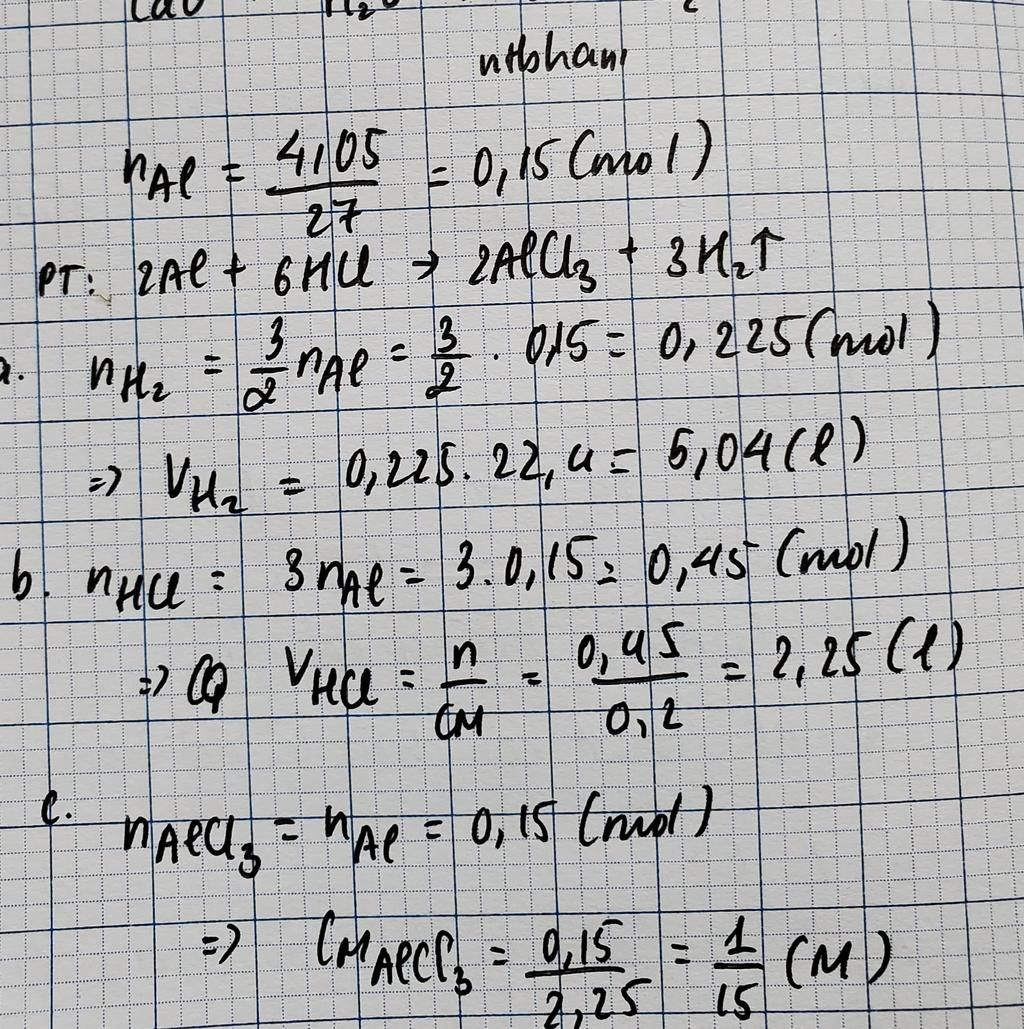 CaO H₂O 2
nHbhami
nAl = 4,05/27 = 0,15 (mol)
PT: 2Al + 6HCl → 2AlCl₃ + 3H₂↑
a. nH₂ = 3/2 nAl = 3/2 . 0,15 = 0,225 (mol)
=> VH₂ = 0,225. 22,4 = 5,04 (l)
b. nHCl = 3nAl = 3.0,15 = 0,45 (mol)
=> VHCl = n/CM = 0,45/0,2 = 2,25 (l)
c. nAlCl₃ = nAl = 0,15 (mol)
=> CM AlCl₃ = 0,15/2,25 = 1/15 (M)